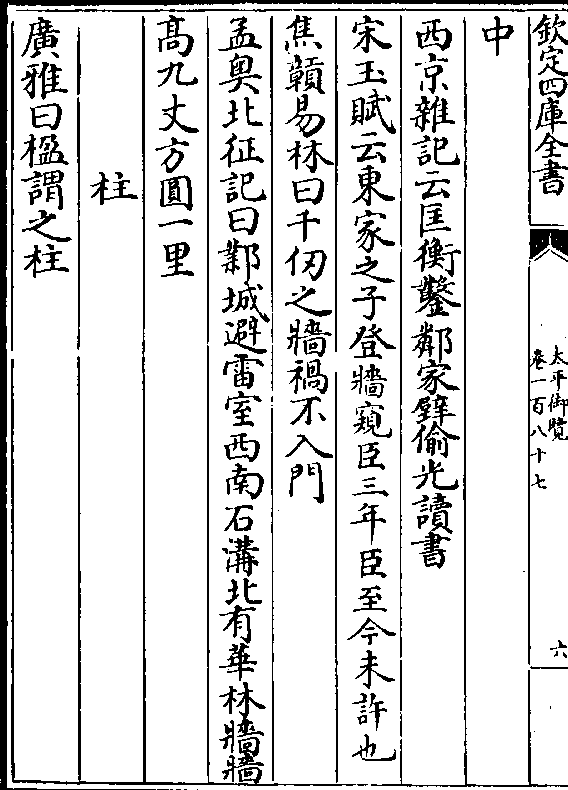 欽定四庫全書
太平御覽
卷一百八十七
六
中
西京雜記云匡衡鑿鄰家壁偷光讀書
宋玉賦云東家之子登牆窺臣三年臣至今未許也
焦贑易林曰千仞之牆禍不入門
孟奥北征記曰鄴城避雷室西南石溝北有華林牆牆
髙九丈方圓一里
柱
廣雅曰楹謂之柱